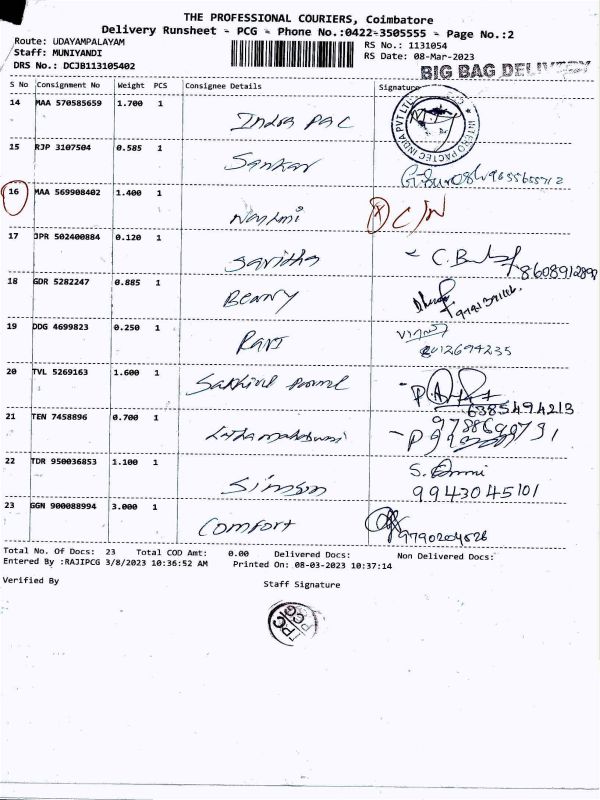 THE PROFESSIONAL COURIERS, Coimbatore
Delivery Runsheet - PCG - Phone No.:0422-3505555 - Page No.:2
Route: UDAYAMPALAYAM
RS No.: 1131054
Staff: MUNIYANDI
RS Date: 08-Mar-2023
DRS No.: DCJB113105402
BIG BAG DELIVERY
S No Consignment No Weight PCS Consignee Details Signature
14 MAA 570585659 1.700 1
Indra pac
INTERO PACTEC INDIA PVT LTD
15 RJP 3107504 0.585 1
Sankar
9655655712
16 MAA 569908402 1.400 1
17 JPR 502400884 0.120 1
Savitha
8608912898
18 GDR 5282247 0.885 1
19 DDG 4699823 0.250 1
Ravi
8012694235
20 TVL 5269163 1.600 1
6385494213
21 TEN 7458896 0.700 1
22 TDR 950036853 1.100 1
Simson
9943045101
23 GGN 900088994 3.000 1
Comfort
9790204526
Total No. Of Docs: 23 Total COD Amt: 0.00 Delivered Docs: Non Delivered Docs:
Entered By :RAJIPCG 3/8/2023 10:36:52 AM Printed On: 08-03-2023 10:37:14
Verified By Staff Signature